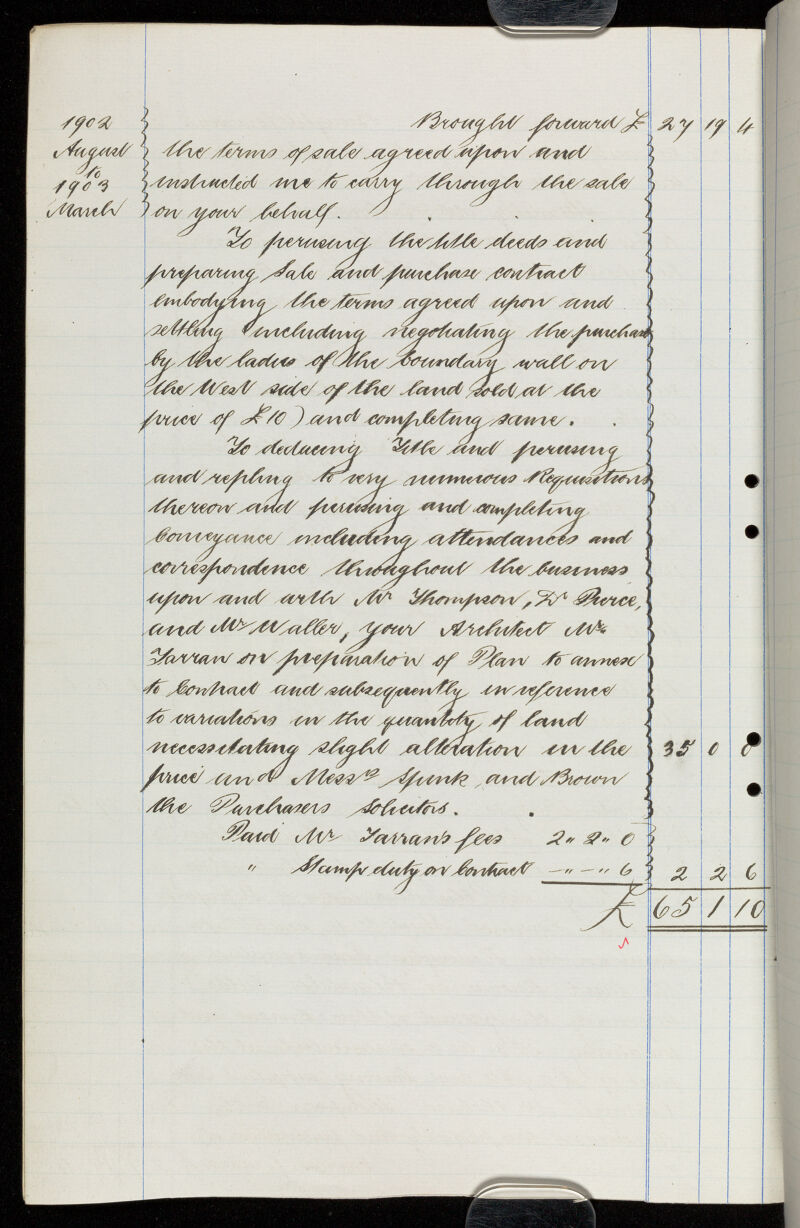 1902 Brought forward £ 27 19 4
August the terms of sale agreed upon and
to
1903 instructed me to carry through the sale
March on your behalf.
To perusing the title deeds and
preparing Sale and purchase contract
embodying the terms agreed upon and
settling including negotiating the purchase
by the ladies of the boundary wall on
the West side of the land sold at the
price of £10) and completing same.
To deducing Title and perusing
and repling to very numerous Requisitions
thereon and perusing and completing
Conveyance including attendances and
correspondence throughout the business
upon and with Mr Thompson, Dr Pierce,
and Mr Waller, your Architect Mr
Farran on preparation of Plan to annex
to Contract and subsequently in reference
to variations in the quantity of land
necessitating slight alteration in the 35 0 0
price and Messrs Spink and Brown
the Purchasers Solicitors.
Paid Mr Farran's fees 2 " 2 " 0
" Stamp duty on Contract — " — " 6 2 2 6
£ 65 1 10